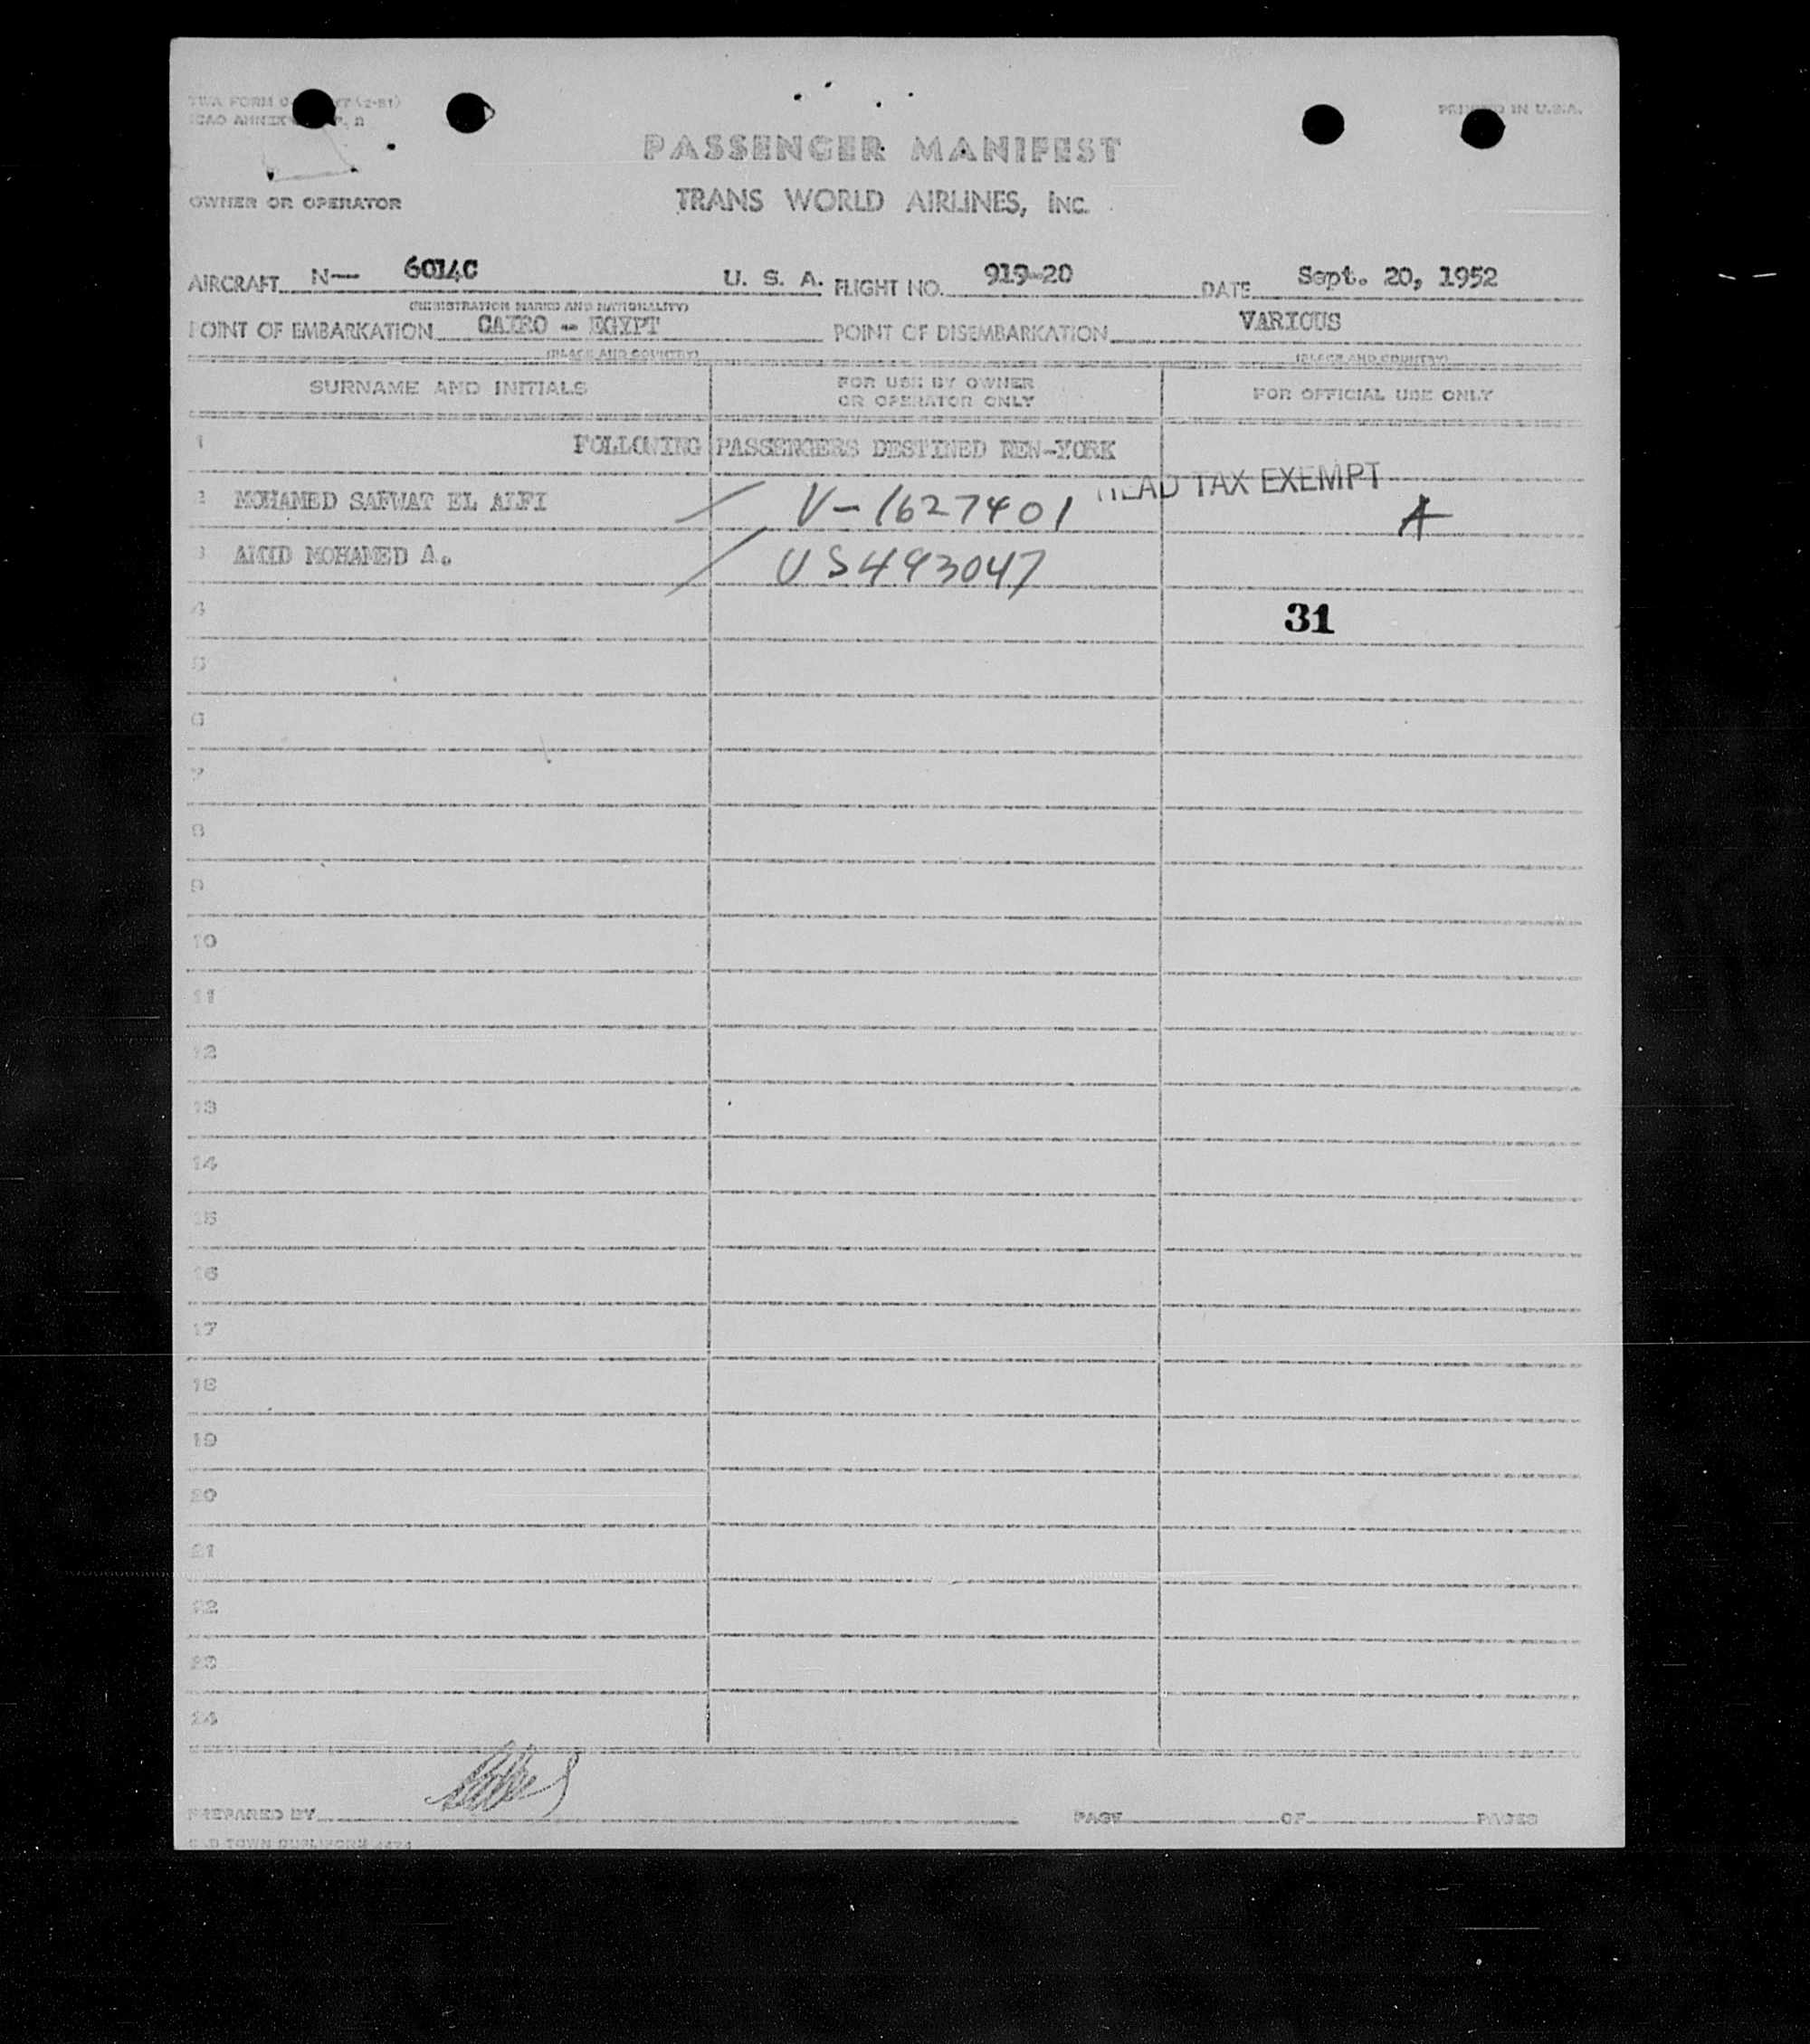 TWA FORM
ICAO ANNEX
PRINTED IN U.S.A.
PASSENGER MANIFEST
OWNER OR OPERATOR
TRANS WORLD AIRLINES, INC.
AIRCRAFT N— 6014C U. S. A. FLIGHT NO. 919-20 DATE Sept. 20, 1952
(REGISTRATION MARKS AND NATIONALITY)
POINT OF EMBARKATION CAIRO - EGYPT POINT OF DISEMBARKATION VARIOUS
(PLACE AND COUNTRY) (PLACE AND COUNTRY)
SURNAME AND INITIALS FOR USE BY OWNER OR OPERATOR ONLY FOR OFFICIAL USE ONLY
1 FOLLOWING PASSENGERS DESTINED NEW-YORK
HEAD TAX EXEMPT
2 MOHAMED SAFWAT EL ALFI V-1627401 A
3 AMID MOHAMED A. US493047
4 31
5
6
7
8
9
10
11
12
13
14
15
16
17
18
19
20
21
22
23
24
PREPARED BY PAGE OF PAGES